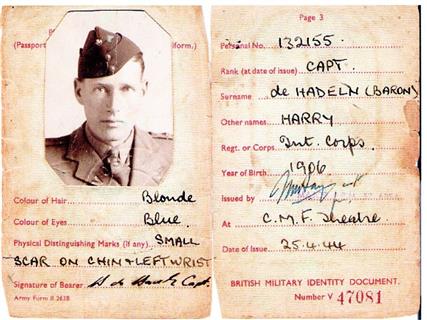 (Passport
iform.)
Colour of Hair Blonde
Colour of Eyes Blue
Physical Distinguishing Marks (if any) SMALL
SCAR ON CHIN & LEFT WRIST
Signature of Bearer Capt.
Army Form B 2638
Page 3
Personal No. 132155.
Rank (at date of issue) CAPT.
Surname de HADELN (BARON)
Other names HARRY
Regt. or Corps Int. Corps.
Year of Birth 1906
Issued by
At C.M.F. Theatre
Date of Issue 25.4.44
BRITISH MILITARY IDENTITY DOCUMENT.
Number V 47081